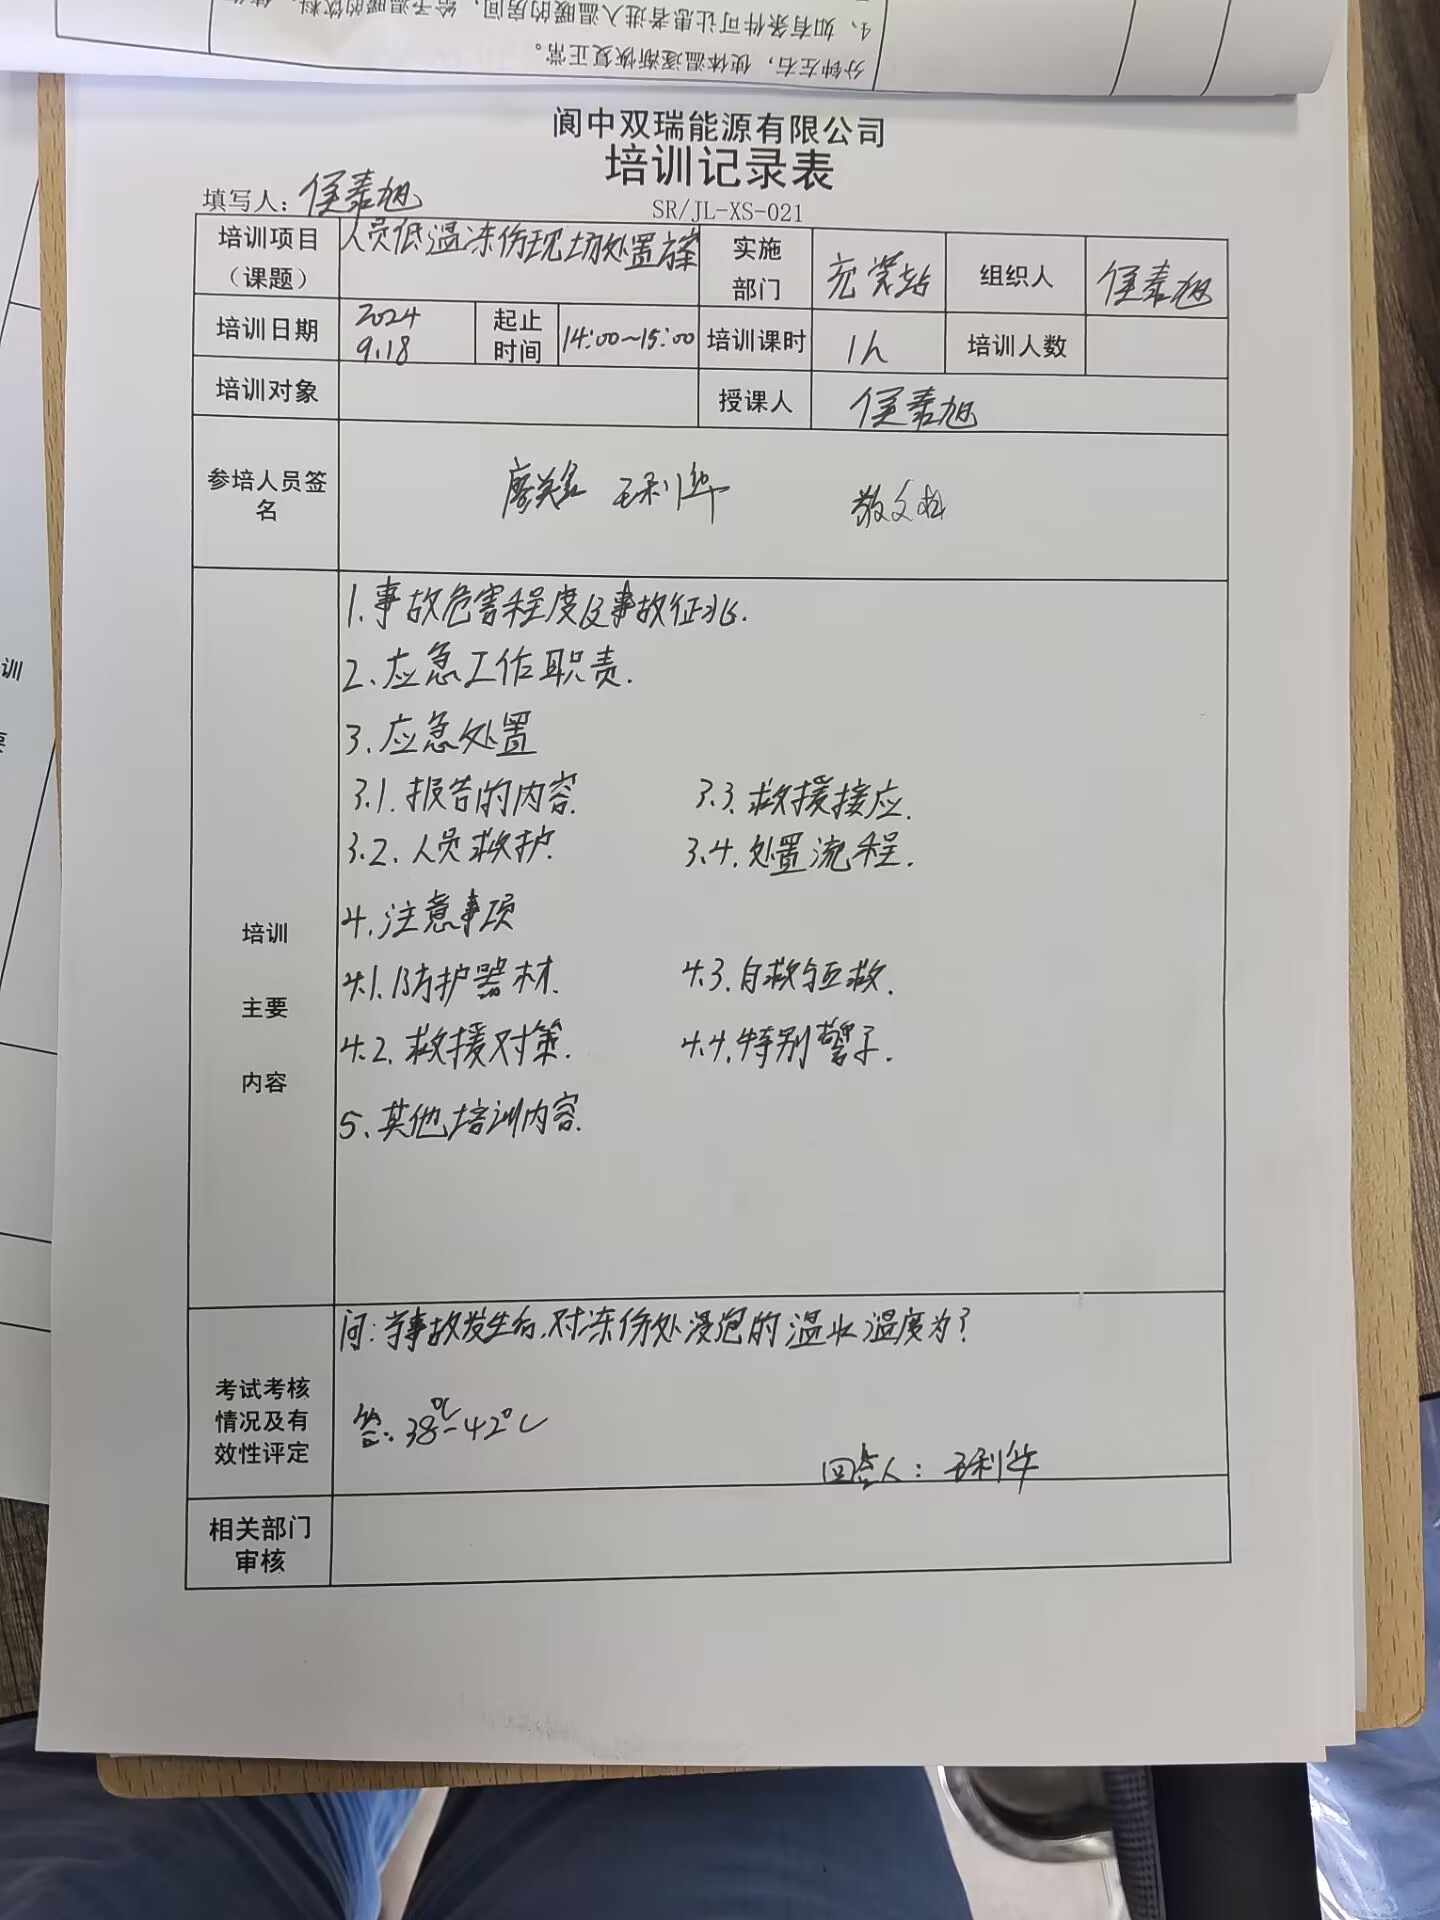 4、如有条件可让患者进入温暖的房间，给予温暖的饮料，
分钟左右，使体温逐渐恢复正常。
阆中双瑞能源有限公司
培训记录表
填写人：侯春旭
SR/JL-XS-021
培训项目（课题） 人员低温冻伤现场处置方案 实施部门 充装站 组织人 侯春旭
培训日期 2024 9.18 起止时间 14:00~15:00 培训课时 1h 培训人数
培训对象 授课人 侯春旭
参培人员签名 王利华 敬文
培训主要内容
1.事故危害程度及事故征兆.
2.应急工作职责.
3.应急处置
3.1.报告的内容. 3.3.救援接应.
3.2.人员救护. 3.4.处置流程.
4.注意事项
4.1.防护器材. 4.3.自救与互救.
4.2.救援对策. 4.4.特别警示.
5.其他培训内容.
考试考核情况及有效性评定
问:当事故发生后,对冻伤处浸泡的温水温度为?
答:38℃-42℃
回答人：王利华
相关部门审核
训
要